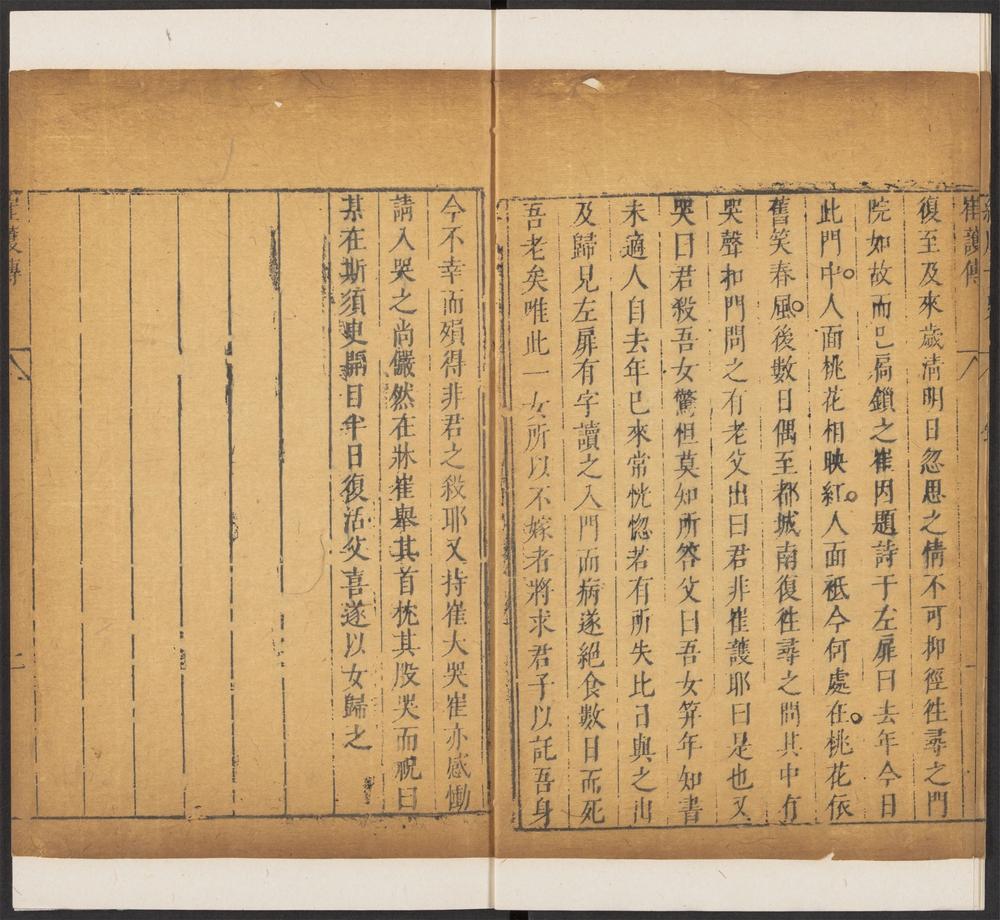 崔護傳
復至及來歲清明日忽思之情不可抑徑徃尋之門
院如故而已扃鎖之崔因題詩于左扉曰去年今日
此門中。人面桃花相映紅。人面祗今何處在。桃花依
舊笑春風。後數日偶至都城南復徃尋之問其中有
哭聲扣門問之有老父出曰君非崔護耶曰是也又
哭曰君殺吾女驚怛莫知所答父曰吾女笄年知書
未適人自去年已來常恍惚若有所失比日與之出
及歸見左扉有字讀之入門而病遂絕食數日而死
吾老矣唯此一女所以不嫁者將求君子以託吾身
今不幸而殞得非君之殺耶又持崔大哭崔亦感慟
請入哭之尚儼然在牀崔舉其首枕其股哭而祝曰
某在斯須臾開目半日復活父喜遂以女歸之
崔護傳
二